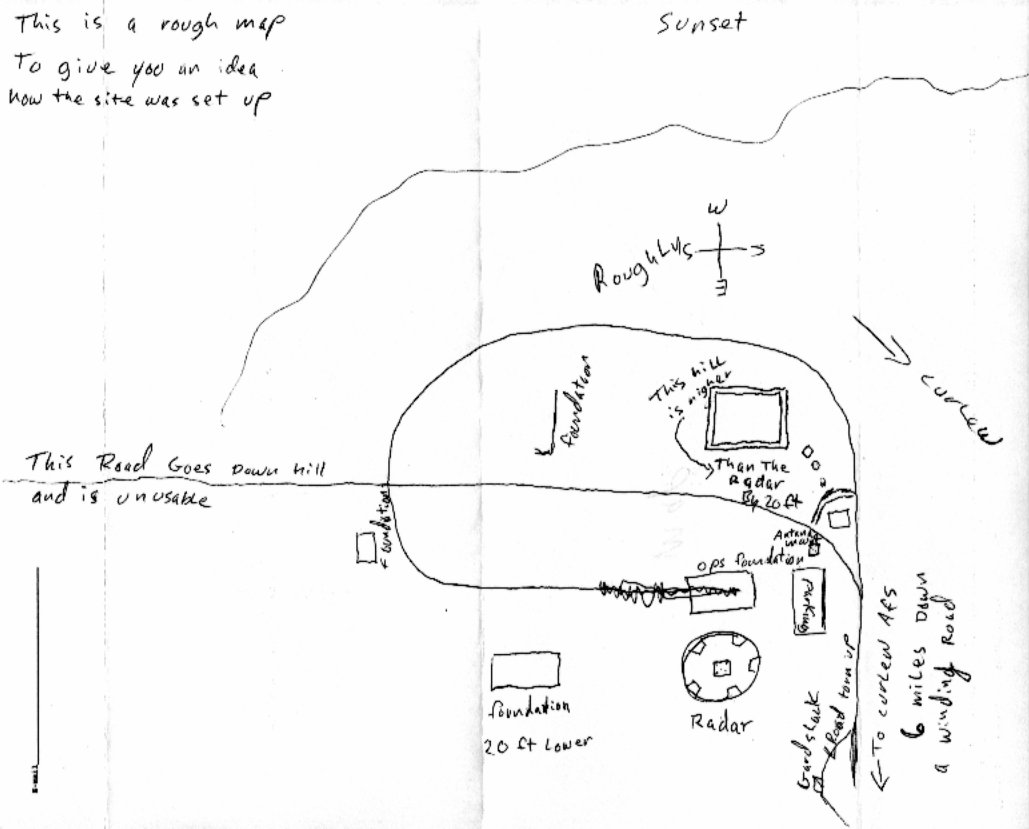 This is a rough map
To give you an idea
how the site was set up
Sunset
W
S
E
Curlew
foundation
This hill
is higher
Than The
Radar
By 20 ft
This Road Goes Down hill
and is unusable
foundation
Antenna
ops foundation
Parking
foundation
20 ft Lower
Radar
Gard shack
Road torn up
←To curlew AFS
6 miles Down
a winding Road
E-mail